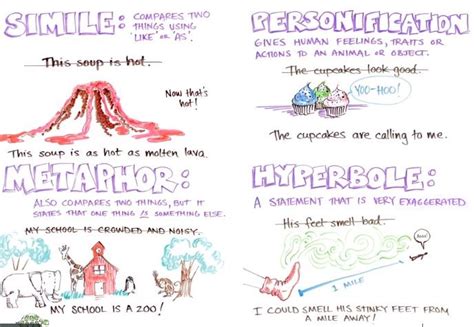 SIMILE: COMPARES TWO
THINGS USING
'LIKE' OR 'AS'.
This soup is hot.
Now that's
hot!
This soup is as hot as molten lava.
PERSONIFICATION
GIVES HUMAN FEELINGS, TRAITS OR
ACTIONS TO AN ANIMAL OR OBJECT.
The cupcakes look good.
YOO-HOO!
The cupcakes are calling to me.
METAPHOR:
ALSO COMPARES TWO THINGS, BUT IT
STATES THAT ONE THING IS SOMETHING ELSE.
MY SCHOOL IS CROWDED AND NOISY.
MY SCHOOL IS A ZOO!
HYPERBOLE:
A STATEMENT THAT IS VERY EXAGGERATED
His feet smell bad.
1 MILE
I COULD SMELL HIS STINKY FEET FROM
A MILE AWAY!